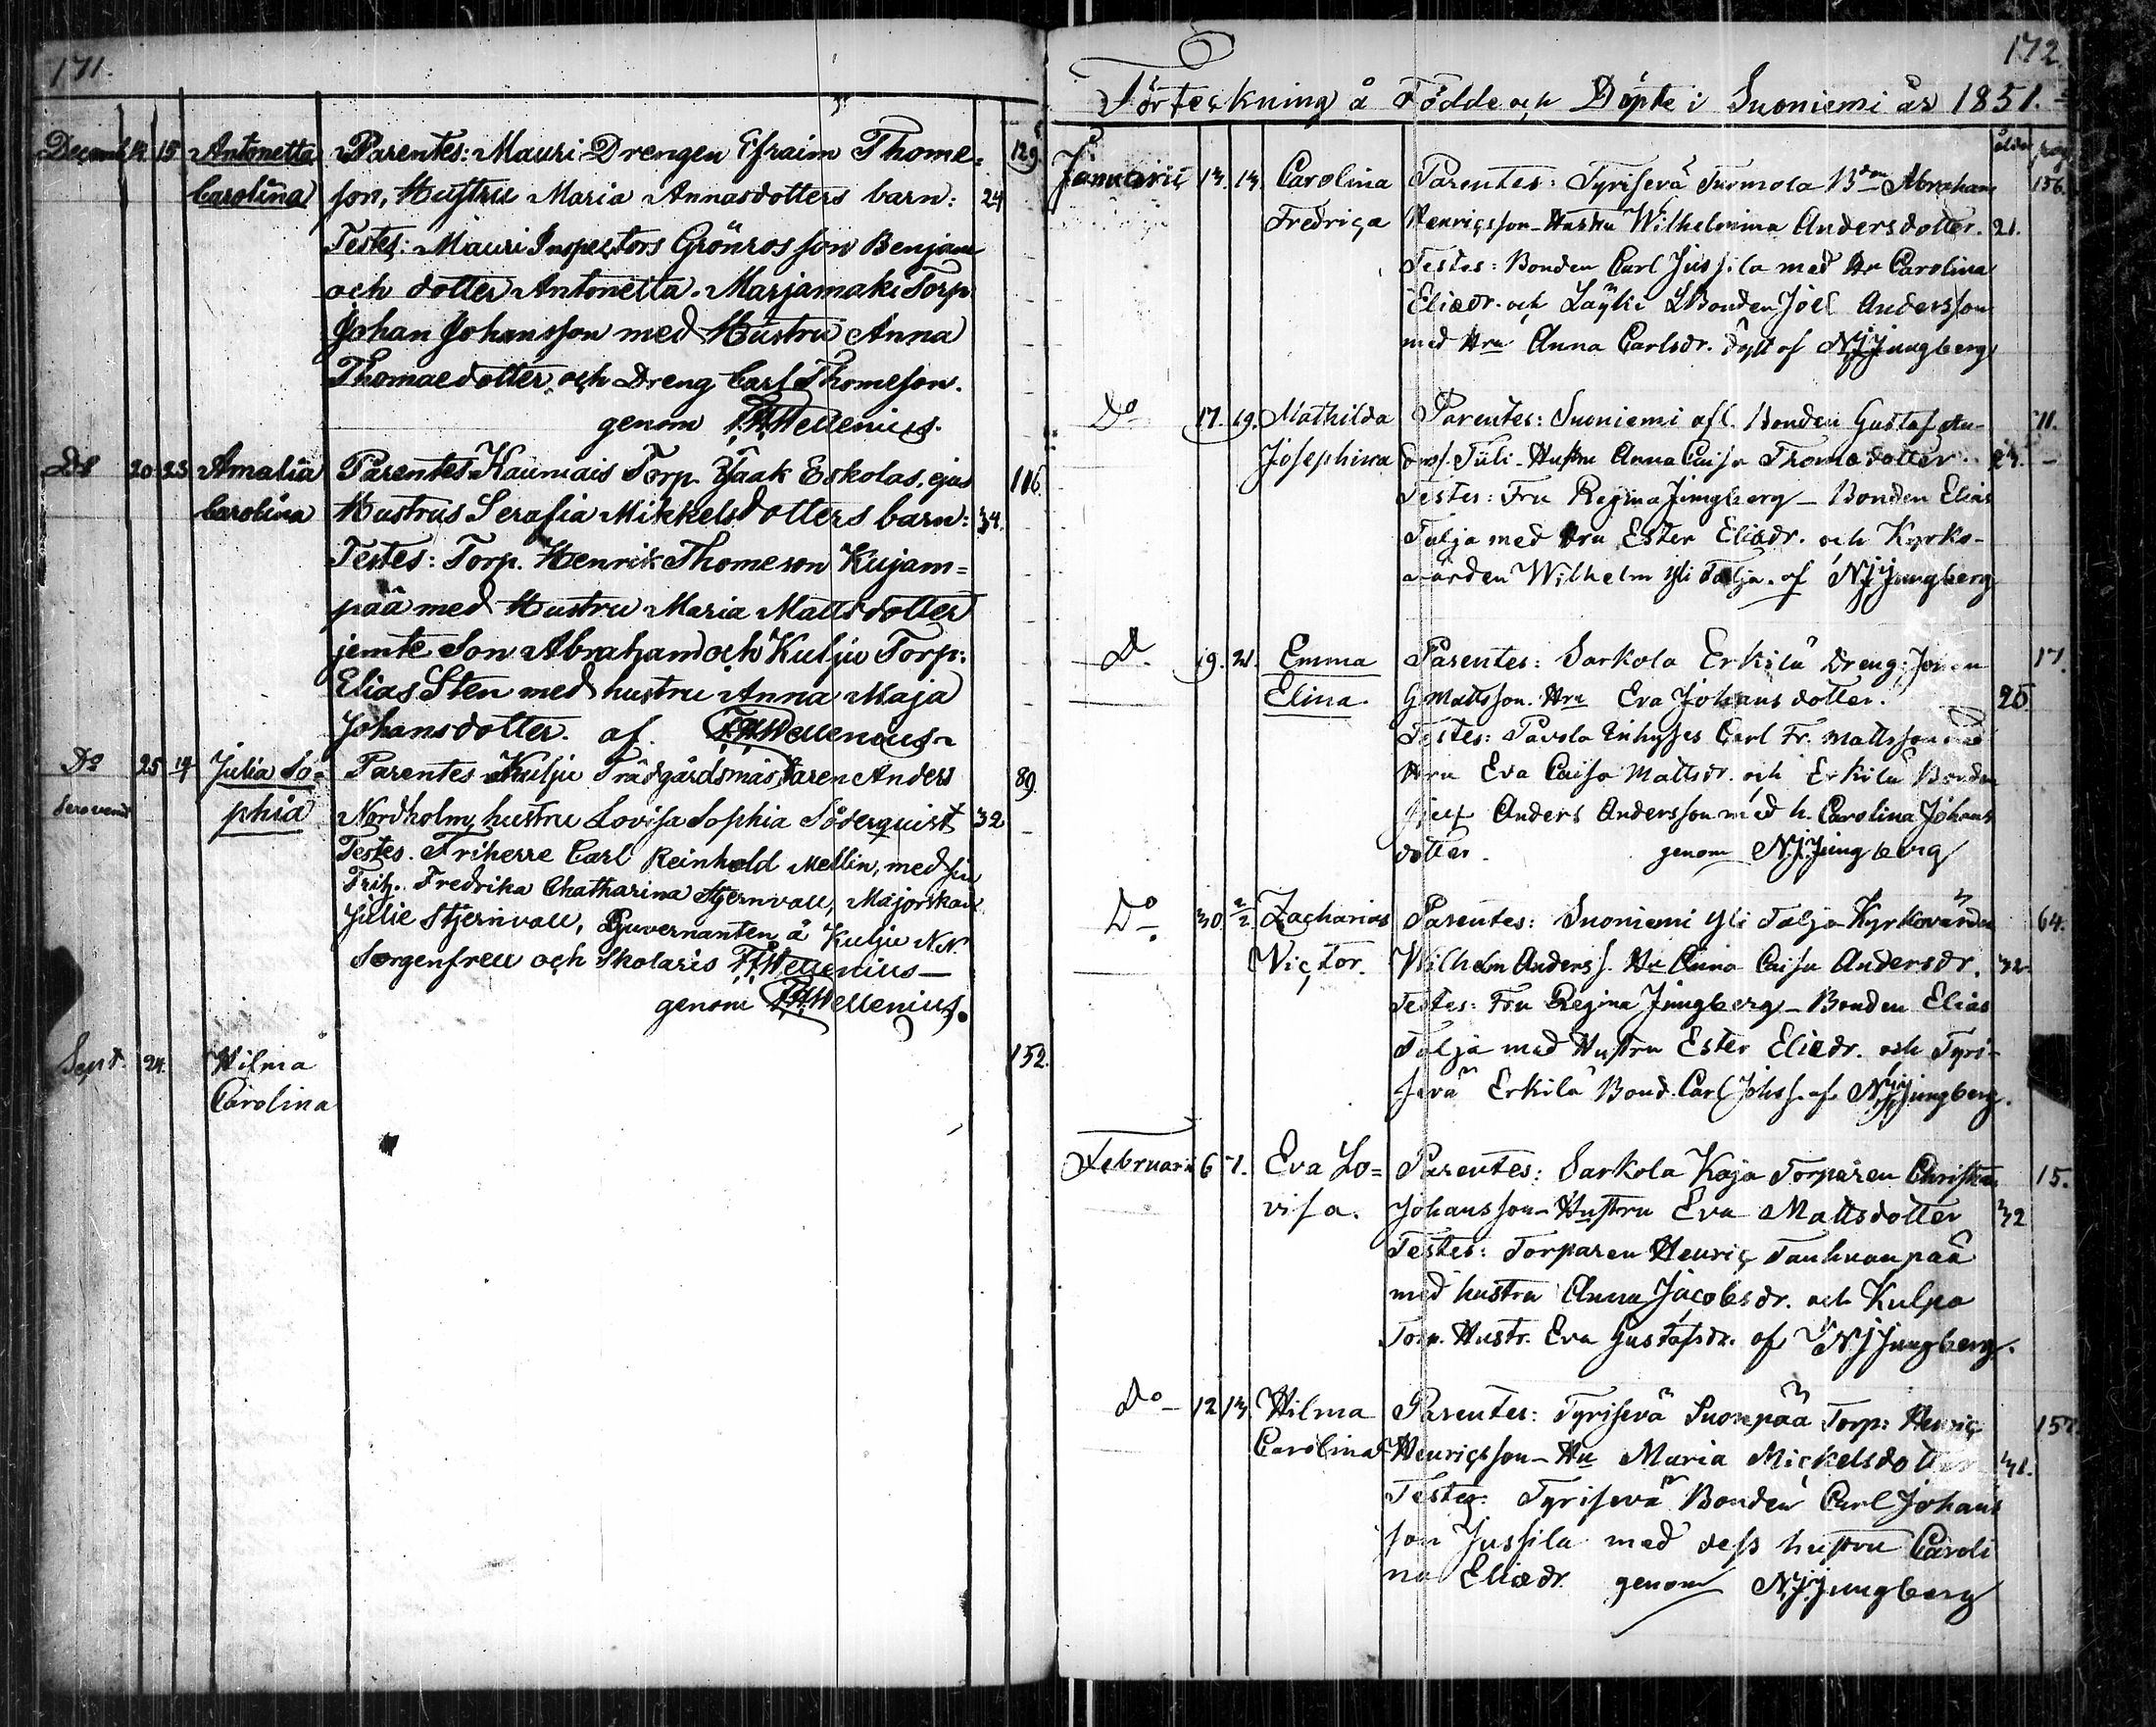 171.
Decemb 14 15 Antonetta Parentes: Mauri Drengen Efraim Thome= 129.
Carolina son, Hustru Maria Annasdotters barn: 24
Testes: Mauri Inspectors Grönros son Benjam
och dotter Antonetta. Marjamaki Torp.
Johan Johansson med Hustru Anna
Thomaedotter och Dreng Carl Thomeson.
genom F.H.Wellenius.
Do 20 23 Amalia Parentes Kauniais Torp. Isaak Eskolas, ejus 116.
Carolina Hustrus Serafia Mikkelsdotters barn: 34.
Testes: Torp. Henrik Thomeson Kujam=
pää med Hustru Maria Mattsdotter
jemte Son Abraham och Kulju Torp:
Elias Sten med hustru Anna Maja
Johansdotter. af. F.H.Wellenius
Do 25 Julia So= Parentes Kulju Trädgårdsmästaren Anders 89.
phia Nordholm, hustru Lovisa Sophia Söderquist 32
Testes. Friherre Carl Reinhold Mellin, med sin
Frih. Fredrika Chatharina Stjernvall, Majorskan
Julie Stjernvall, Guvernanten å Kulju N.N.
Sorgenfreu och Skolaris F.H.Wellenius—
genom F.H.Wellenius.
Sept. 24. Hilma 152.
Carolina
172.
Förteckning å Födde och Döpte i Suoniemi år 1851.
ålder pag.
Januarii 13. 13. Carolina Parentes: Tyrisevä Tuomola Bden Abraham 156.
Fredrica Henricsson - Hustru Wilhelmina Andersdotter. 21.
Testes: Bonden Carl Jussila med Hu Carolina
Eliædr. och Laÿki Bonden Joel Andersson
med Hru Anna Carlsdr. Döpt af N.J.Jungberg
Do 17. 19. Mathilda Parentes: Suoniemi afl. Bonden Gustaf An- 11.
Josephina ders. Tuli - Hustru Anna Caisa Thomædotter.
Testes: Fru Regina Jungberg - Bonden Elias
Talja med Hru Ester Eliædr. och Kyrko-
värden Wilhelm Yli Talja. af N.J.Jungberg
D. 19. 21. Emma Parentes: Sarkola Erkilä Dreng: Johan 17.
Elina. G Mattsson. Hru Eva Johansdotter. 25.
Testes: Pavola Inhyses Carl Fr. Mattsson med
Hru Eva Caisa Mattsdr. och Erkilä Bonden
Anders Andersson med h. Carolina Johans
dotter. genom N.J.Jungberg
Do 30. 2/2 Zacharias Parentes: Suoniemi Yli Talja Kyrkovärden 64.
Victor. Wilhelm Anders s. Hu Anna Caisa Andersdr. 32.
Testes: Fru Regina Jungberg - Bonden Elias
Talja med Hustru Ester Eliædr. och Tyri-
sevä Erkilä Bond. Carl Johss. af N.J.Jungberg.
Februarii 6 7. Eva Lo= Parentes: Sarkola Kaja Torparen Christian 15.
visa. Johansson - Hustru Eva Mattsdotter 32
Testes: Torparen Henric Tanhuanpää
med hustru Anna Jacobsdr. och Kulpo
Torp. Hustr. Eva Gustafsdr. af N.J.Jungberg.
Do 12 13. Hilma Parentes: Tyrisevä Suonpää Torp: Henric 152.
Carolina Henricsson - Hu Maria Mickelsdotter 31.
Testes: Tyrisevä Bonden Carl Johans
son Jussila med dess hustru Caroli
na Eliædr. genom N.J.Jungberg